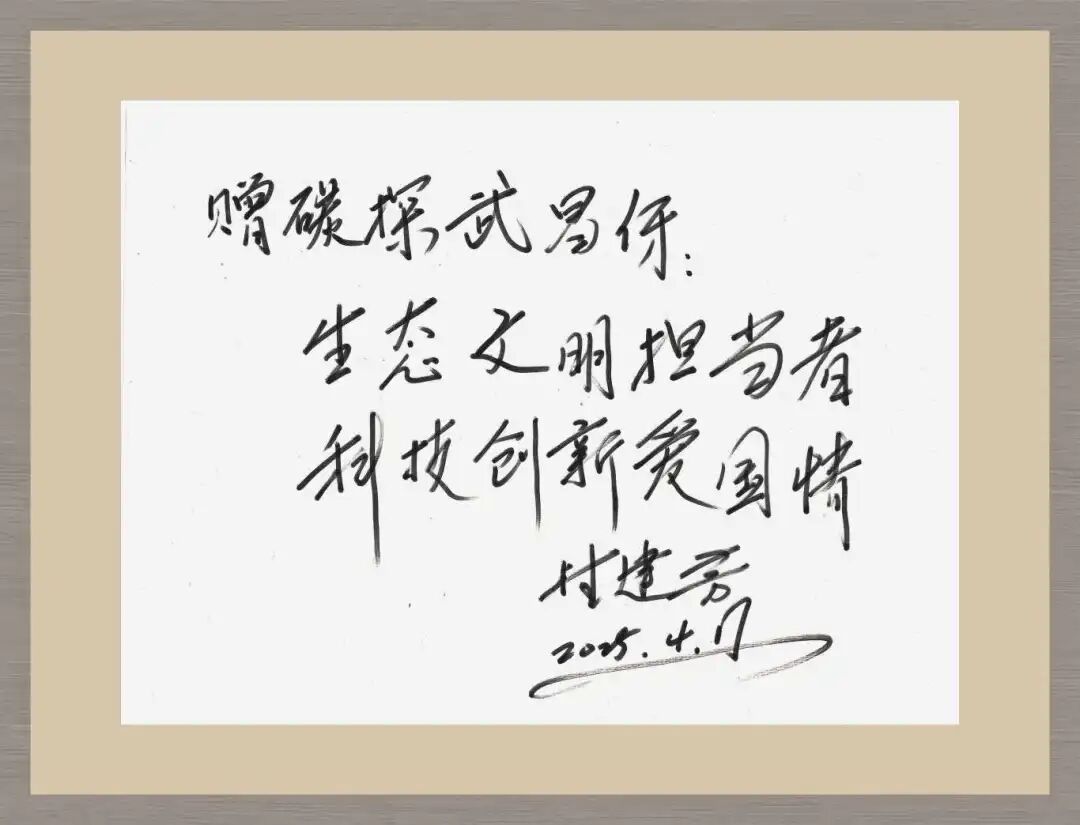 赠碳探武昌伢:
生态文明担当者
科技创新爱国情
桂建芳
2025.4.17